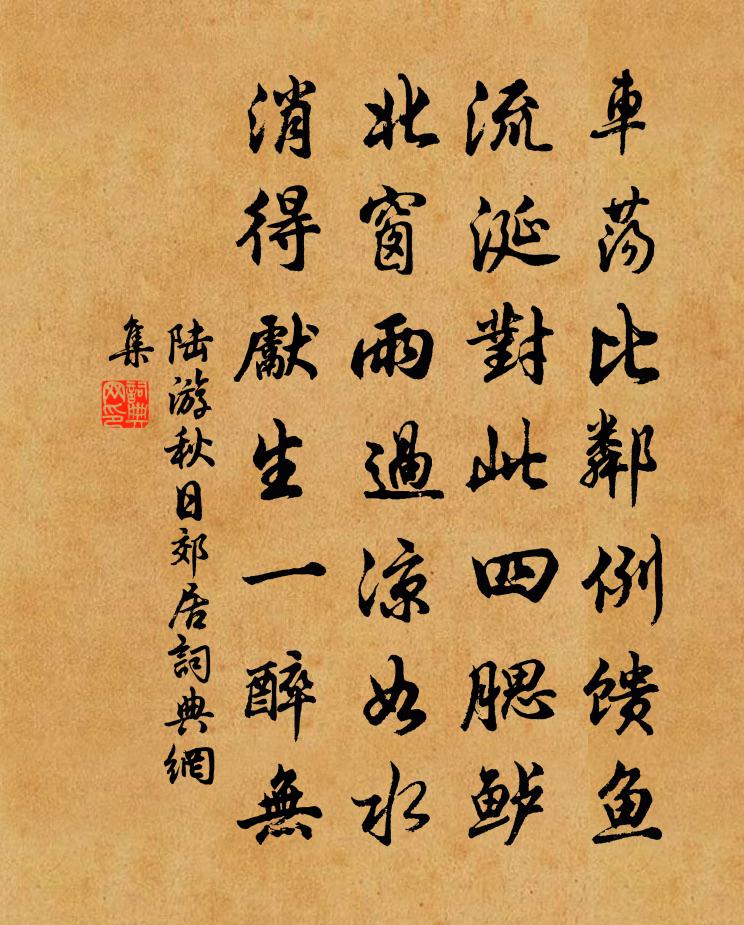 車荡比鄰例馈鱼
流涎對此四腮鲈
北窗雨過涼如水
消得獻生一醉無
陆游秋日郊居詞典網
集
詞典网印